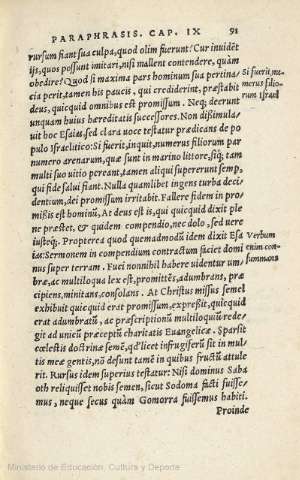 PARAPHRASIS. CAP. IX 91
rursum fiant sua culpa, quod olim fuerunt? Cur inuidēt
ijs, quos possunt imitari, nisi mallent contendere, quàm
obedire? Quod si maxima pars hominum sua pertina/
cia perit, tamen his paucis, qui crediderint, præstabit
deus, quicquid omnibus est promissum. Neq; deerunt
unquam huius hæreditatis successores. Non dissimula/
uit hoc Esaias, sed clara uoce testatur prædicans de po
pulo Israëlitico: Si fuerit, inquit, numerus filiorum par
numero arenarum, quæ sunt in marino littore, siq́; tam
multi suo uitio pereant, tamen aliqui supererunt semp,
qui fide salui fiant. Nulla quamlibet ingens turba deci
dentium, dei promissum irritabit. Fallere fidem in pro/
mißis est hominū, At deus est is, qui quicquid dixit ple
ne præstet, & quidem compendio, nec dolo, sed uere
iusteq́;. Propterea quod quemadmodū idem dixit Esa
ias: Sermonem in compendium contractum faciet domi
nus super terram. Fuci nonnihil habere uidentur um/
bræ, ac multiloqua lex est, promittēs, adumbrans, præ
cipiens, minitans, consolans. At Christus missus semel
exhibuit quicquid erat promissum, expreßit, quicquid
erat adumbratū, ac præscriptionū multiloquiū rede/
git ad unicū præceptū charitatis Euangelicæ. Sparsit
cœlestis doctrinæ semē, qd' licet infrugiferū sit in mul
tis meæ gentis, nō desunt tamē in quibus fructū attule
rit. Rursus idem superius testatur: Nisi dominus Saba
oth reliquisset nobis semen, sicut Sodoma facti fuisse/
mus, neque secus quàm Gomorra fuissemus habiti.
Proinde
Si fuerit nu/
merus filio/
rum Israel
Verbum
enim con/
summans
Ministerio de Educación, Cultura y Deporte